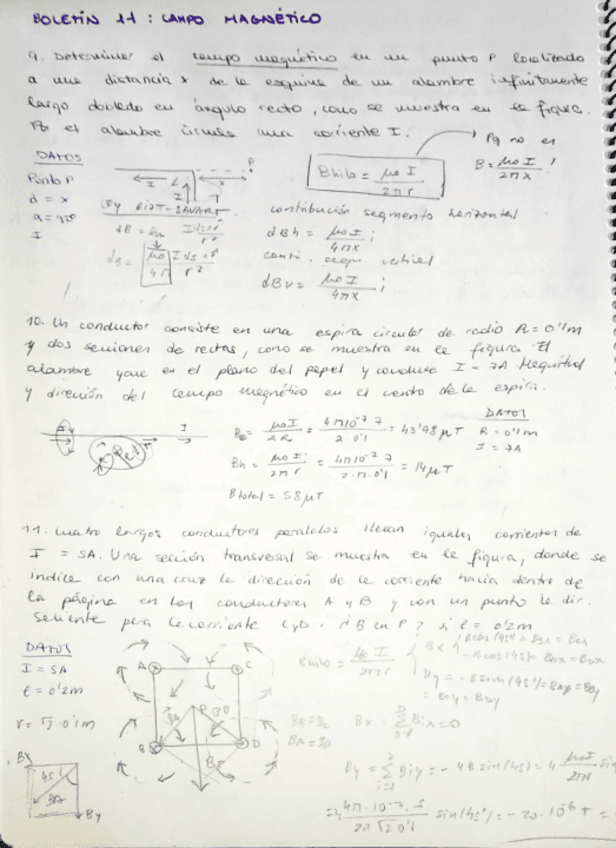 BOLETÍN 11: CAMPO MAGNÉTICO
9. Determinar el campo magnético en un punto P localizado
a una distancia x de la esquina de un alambre infinitamente
largo doblado en ángulo recto, como se muestra en la figura.
Por el alambre circula una corriente I.
DATOS
Punto P
d = x
a = 90º
I
P
I
x
Ley BIOT-SAVART
B hilo = μo I / 2πr
Pq no es
B = μo I / 2πx !
contribución segmento horizontal
dBh = μo I / 4πx ;
cont. segm. vertical
dBv = μo I / 4πx ;
10. Un conductor consiste en una espira circular de radio R = 0'1m
y dos secciones de rectas, como se muestra en la figura. El
alambre yace en el plano del papel y conduce I = 7A Magnitud
y dirección del campo magnético en el centro de la espira.
I
DATOS
R = 0'1m
I = 7A
= μo I / 2R = 4π10⁻⁷ 7 / 2·0'1 = 43'98 μT
Bh = μo I / 2πr = 4π10⁻⁷ 7 / 2·π·0'1 = 14 μT
B total = 58 μT
11. Cuatro largos conductores paralelos llevan iguales corrientes de
I = 5A. Una sección transversal se muestra en la figura, donde se
indica con una cruz la dirección de la corriente hacia dentro de
la página en los conductores A y B y con un punto la dir.
saliente para la corriente C y D. ¿B en P? si l = 0'2m
DATOS
I = 5A
l = 0'2m
r = √2·0'1m
A
C
P
B
D
B hilo = μo I / 2πr
Bx = Σ Bix = 0
By = Σ Biy = -4B sin(45) = 4 μo I / 2πr
= 4 4π·10⁻⁷·5 / 2π√2 0'1 sin(45º) = -20·10⁻⁶ T =
Bx
45º
BA
By